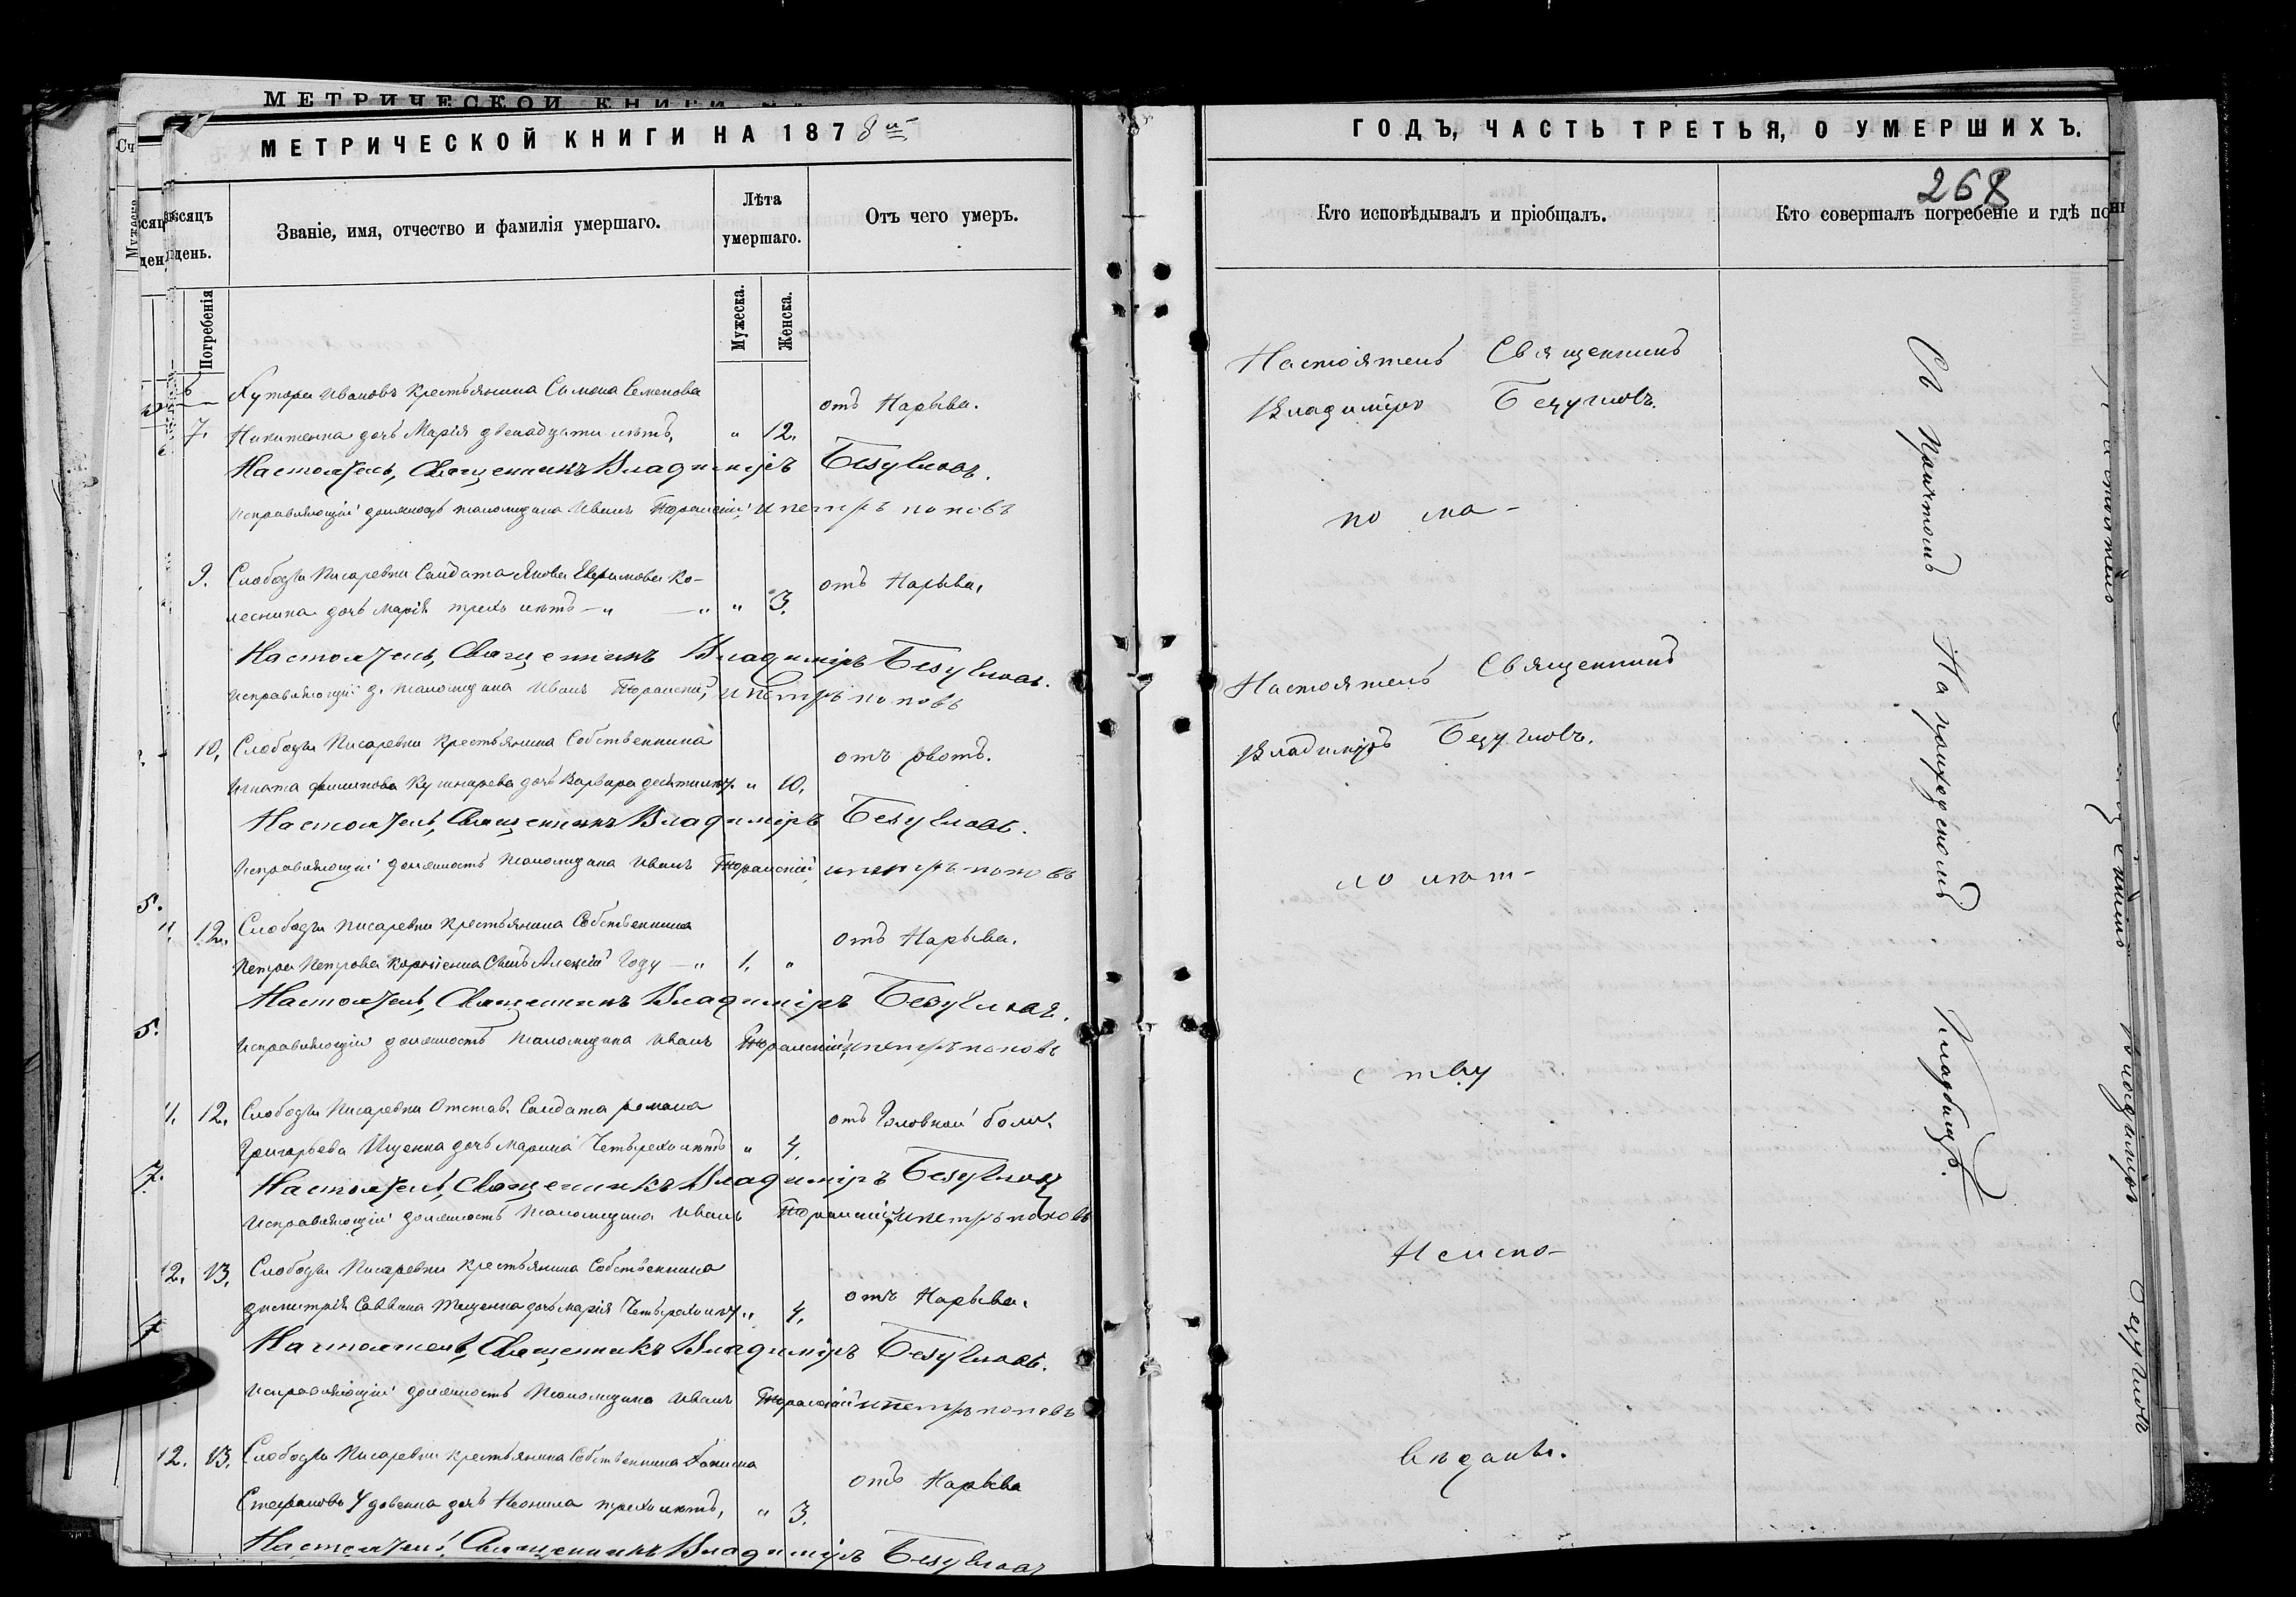 МЕТРИЧЕСКОЙ КНИГИ НА 1878 й
мѣсяцъ
день.
Званіе, имя, отчество и фамилія умершаго.
Лѣта
умершаго.
Отъ чего умеръ.
Погребенія
Мужеска.
Женска.
6 Хутора Ивановъ Крестьянина Симона Семенова
отъ Нарыва.
7. Никитенка дочь Марія двенадцати лѣтъ, " 12.
Настоятель, Священникъ Владиміръ Безугловъ.
Исправляющій должность псаломщика Иванъ и петръ поповъ
9. Слободы Писаревки Солдата Якова Ко-
отъ Нарыва,
лесника дочь Марія трехъ лѣтъ — " — " " 3.
Настоятель, Священникъ Владиміръ Безугловъ.
Исправляющій д. псаломщика Иванъ и петръ поповъ
10. Слободы Писаревки Крестьянина Собственника
отъ рвотъ.
Игната Филипова дочь Варвара десяти лѣт. " 10.
Настоятель, Священникъ Владиміръ Безугловъ.
Исправляющій должность псаломщика Иванъ и петръ поповъ
5.
11. 12. Слободы Писаревки Крестьянина Собственника
отъ Нарыва.
Петра Петрова Корніенка Сынъ Алексій Году — " 1. "
Настоятель, Священникъ Владиміръ Безугловъ.
5.
Исправляющій должность псаломщика Иванъ и петръ поповъ
11. 12. Слободы Писаревки Отстав. Солдата романа
отъ Головной боли.
Григорьева Ищенка дочь Марина Четырехъ лѣтъ " 4.
7.
Настоятель, Священникъ Владиміръ Безугловъ
Исправляющій должность псаломщика Иванъ и петръ поповъ
12. 13. Слободы Писаревки Крестьянина Собственника
отъ Нарыва.
димитрія Саввина дочь Марія Четырехъ лѣт. " 4.
7
Настоятель, Священникъ Владиміръ Безугловъ.
Исправляющій должность псаломщика Иванъ и петръ поповъ
12. 13. Слободы Писаревки Крестьянина Собственника
отъ Нарыва
Стефанова Удовенка дочь Неонила трехъ лѣтъ, " 3.
Настоятель, Священникъ Владиміръ Безугловъ
ГОДЪ, ЧАСТЬ ТРЕТЬЯ, О УМЕРШИХЪ.
268
Кто исповѣдывалъ и пріобщалъ.
Кто совершалъ погребеніе и гдѣ по
Настоятель Священникъ
Владиміръ Безугловъ.
по ма-
Настоятель Священникъ
Владиміръ Безугловъ.
ло лѣт-
ству
Неиспо-
вѣданы.
Настоятель Священникъ Владиміръ Безугловъ
Съ Причтомъ На приходскомъ Кладбищѣ.